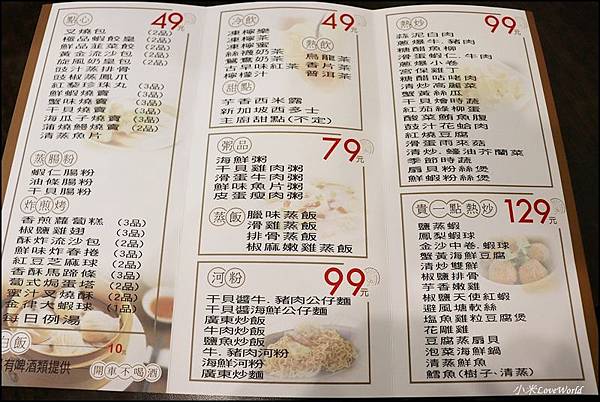 點心 49元
叉燒包 (2品)
極品蝦餃皇 (2品)
鮮品韮菜餃 (2品)
黃金流沙包 (2品)
旋風奶皇包 (2品)
豉汁蒸排骨
豉椒蒸鳳爪
紅藜珍珠丸 (3品)
鮮蝦燒賣 (3品)
蟹味燒賣 (3品)
干貝燒賣 (3品)
海瓜子燒賣 (3品)
蒲燒鰻燒賣 (2品)
清蒸魚片
蒸腸粉
蝦仁腸粉
油條腸粉
干貝腸粉
炸煎烤
香煎蘿蔔糕 (3品)
椒鹽雞翅 (3品)
酥炸流沙包 (2品)
鮮味炸春捲 (3品)
紅豆芝麻球 (2品)
香酥馬蹄條 (3品)
葡式焗蛋塔 (2品)
蜜汁叉燒酥 (2品)
金律大蝦球 (3品)
每日例湯
白飯 10元
有啤酒類提供
開車不喝酒
冷飲 49元
凍檸樂
凍檸茶
凍檸蜜
絲襪奶茶
鴛鴦奶茶
古早味紅茶
檸檬汁
熱飲
烏龍茶
香片茶
普洱茶
甜點
芋香西米露
新加坡西多士
主廚甜點(不定)
粥品 79元
海鮮粥
干貝雞肉粥
滑蛋牛肉粥
鮮味魚片粥
皮蛋瘦肉粥
蒸飯
臘味蒸飯
滑雞蒸飯
排骨蒸飯
椒麻嫩雞蒸飯
河粉 99元
干貝醬牛.豬肉公仔麵
干貝醬海鮮公仔麵
廣東炒飯
牛肉炒飯
鹽魚炒飯
牛.豬肉河粉
海鮮河粉
廣東炒麵
熱炒 99元
蒜泥白肉
蔥爆牛.豬肉
糖醋魚柳
滑蛋蝦仁.牛肉
蔥爆小卷
宮保雞丁
糖醋咕咾肉
清炒高麗菜
蟹黃絲瓜
干貝燴時蔬
紅茄綠柳蛋
酸菜鮪魚腹
豉汁花蛤肉
紅燒豆腐
滑蛋雨來菇
清炒.蠔油芥蘭菜
季節時蔬
扇貝粉絲煲
鮮蝦粉絲煲
貴一點熱炒 129元
鹽蒸蝦
鳳梨蝦球
金沙中卷.蝦球
蟹黃海鮮豆腐
清炒雙鮮
椒鹽排骨
芋香嫩雞
椒鹽天使紅蝦
避風塘軟絲
塩魚雞粒豆腐煲
花雕雞
豆腐蒸扇貝
泡菜海鮮鍋
清蒸鮮魚
鱈魚(樹子.清蒸)
小米LoveWorld